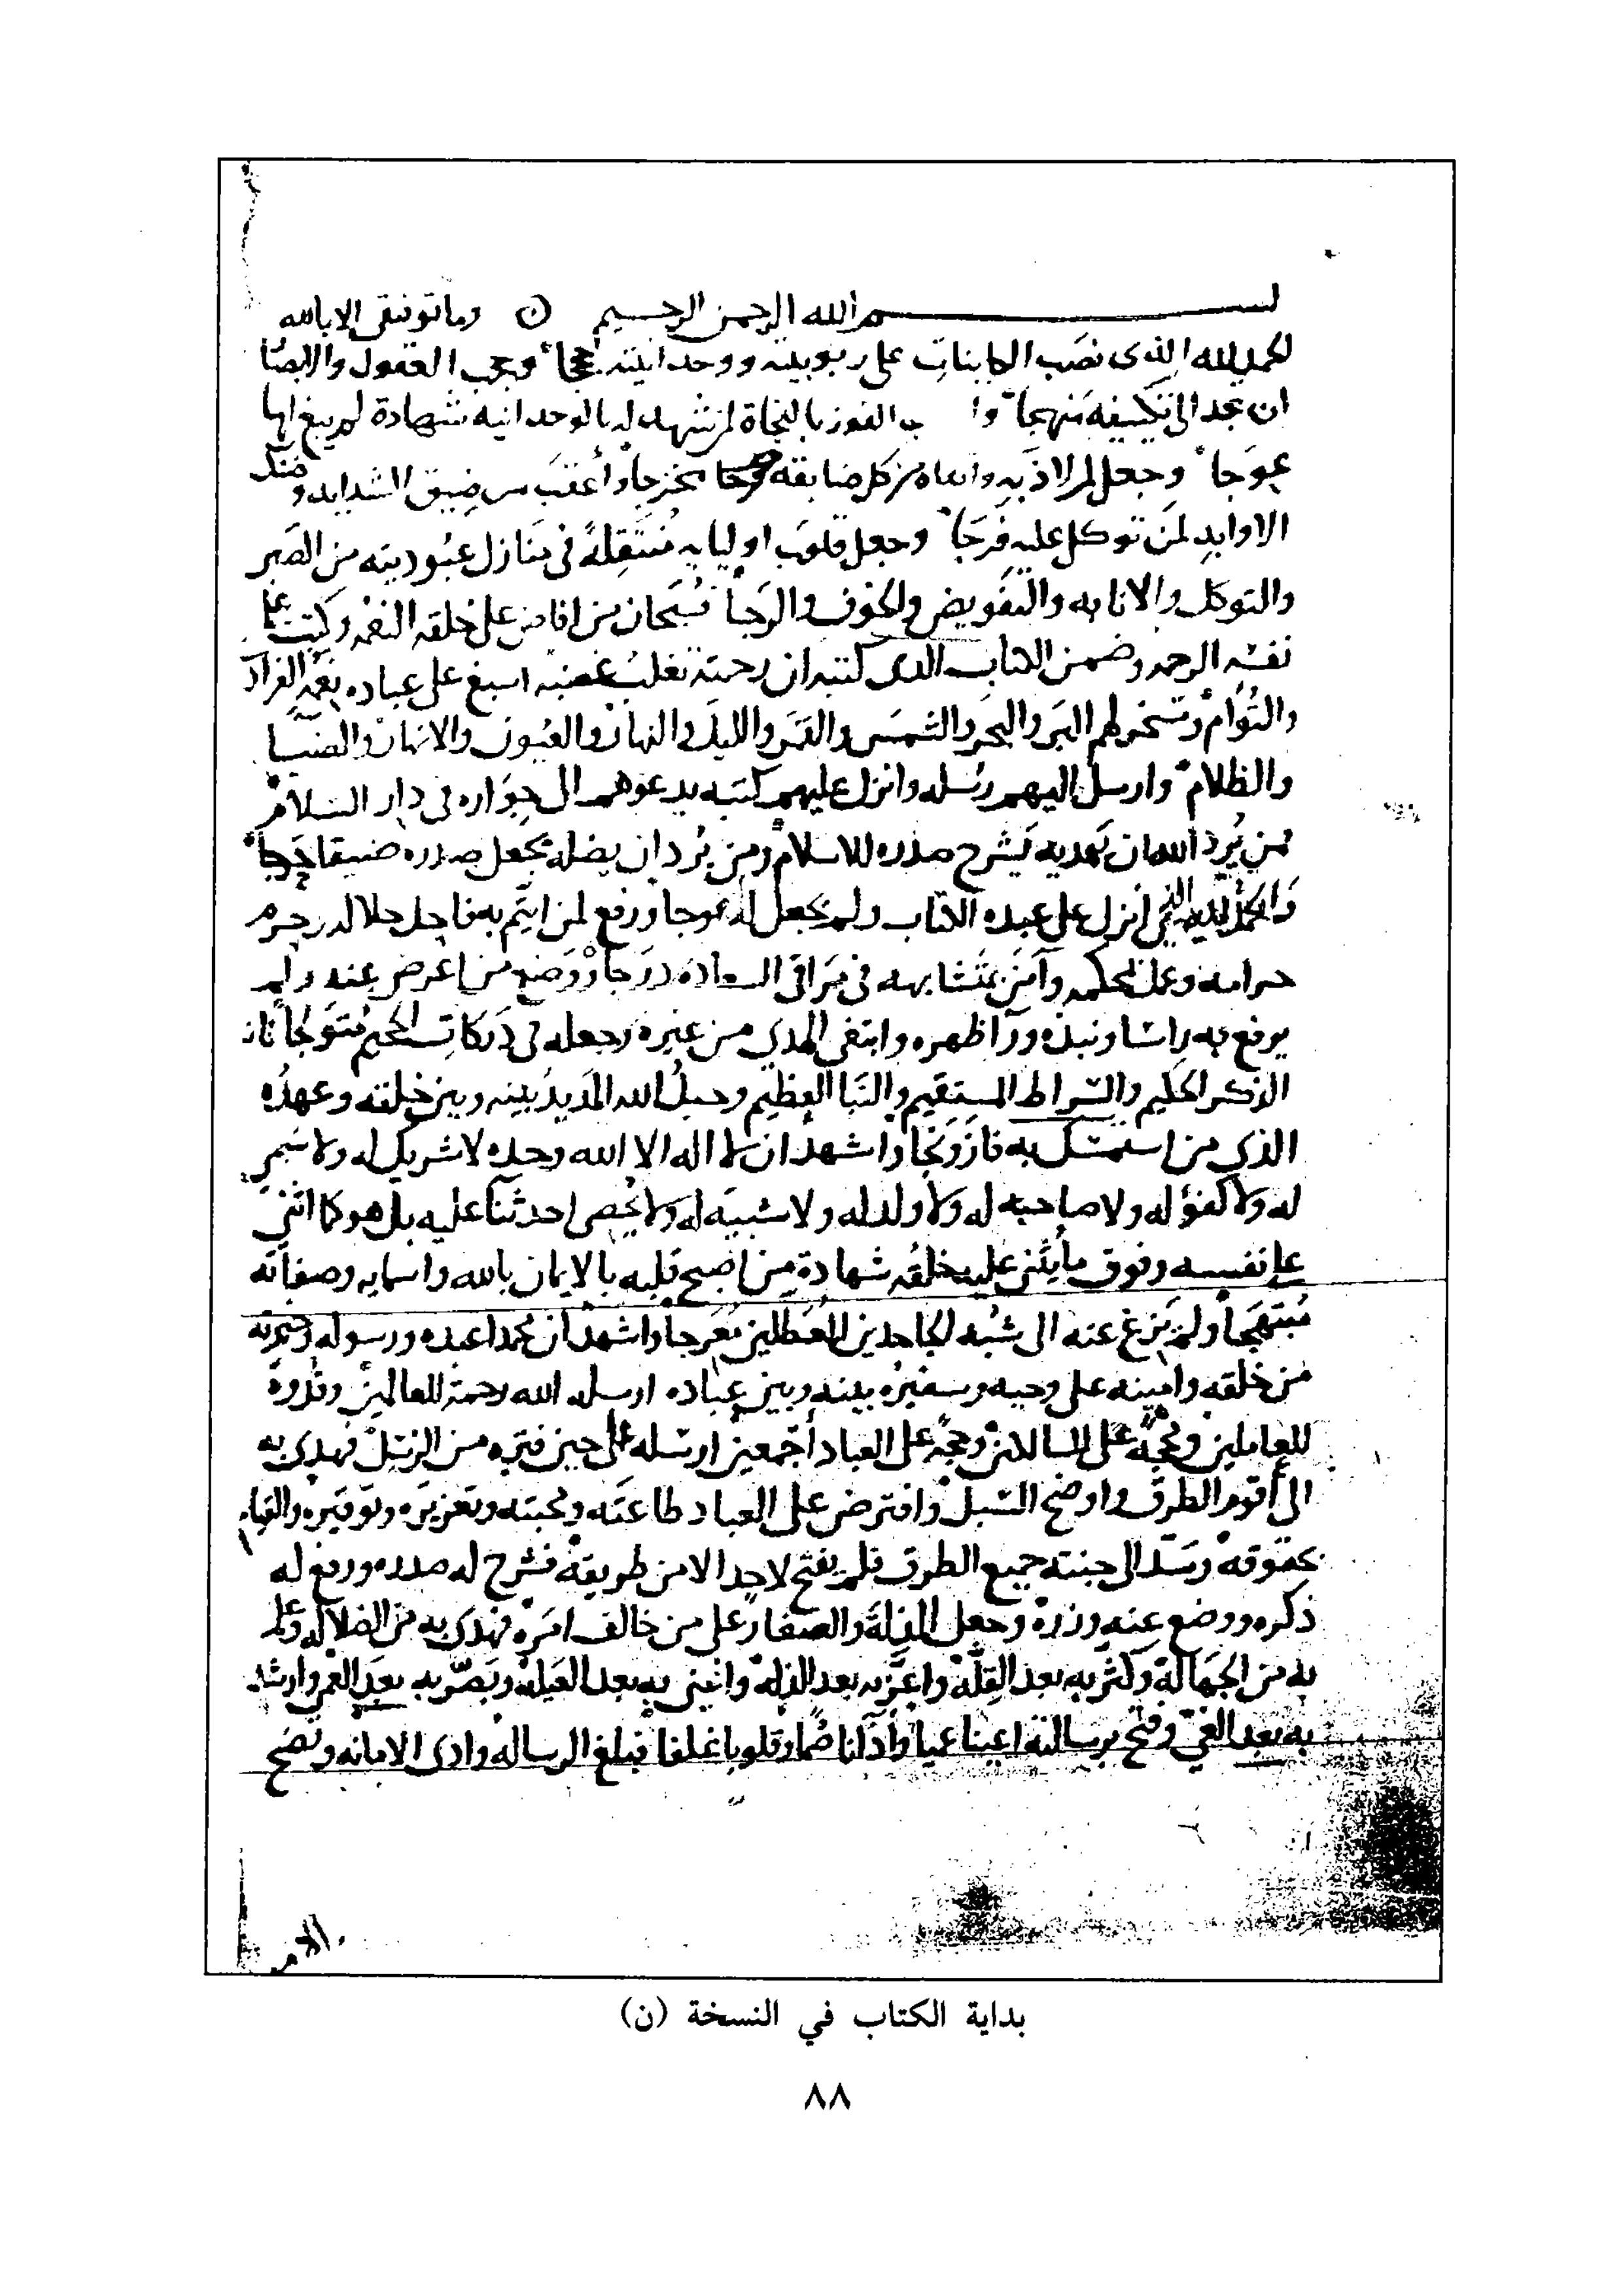 بسم الله الرحمن الرحيم وما توفيقى الا بالله
الحمد لله الذى نصب الكاينات على ربوبيته ووحدانيته حججا وحجب العقول والابصا
ان تجد الى تكييفه منهجا وا ب الفوز بالنجاة لمن شهد له بالوحدانيه شهادة لم يبغ لها
عوجا وجعل لمن لاذ به واتقاه من كل ضايقه مخرجا واعقب من ضيق الشدايد وضنك
الاوابد لمن توكل عليه فرجا وجعل قلوب اوليايه متنقلة فى منازل عبوديته من الصبر
والتوكل والانابه والتفويض والخوف والرجا فسبحان من افاض على خلقه النعمه وكتب على
نفسه الرحمه وضمن الكتاب الذى كتبه ان رحمته تغلب غضبه اسبغ على عباده نعمه الفراد
والتؤام وسخر لهم البر والبحر والشمس والقمر والليل والنهار والعيون والانهار والضيا
والظلام وارسل اليهم رسله وانزل عليهم كتبه يدعوهم الى جواره فى دار السلام
فمن يرد الله ان يهديه يشرح صدره للاسلام ومن يرد ان يضله يجعل صدره ضيقا حرجا
والحمد لله الذي انزل على عبده الكتاب ولم يجعل له عوجا ورفع لمن ايتم به فاحل حلاله وحرم
حرامه وعمل بمحكمه وآمن بمتشابهه فى مراقى السعادة درجا ووضع من اعرض عنه ولم
يرفع به راسا ونبذه ورآ ظهره وابتغى الهدي من غيره وجعله فى دركات الجحيم متولجا فانه
الذكر الحكيم والصراط المستقيم والنبا العظيم وحبل الله المديد بينه وبين خلقه وعهده
الذي من استمسك به فاز ونجا واشهد ان لا اله الا الله وحده لا شريك له ولا سمي
له ولا كفؤ له ولا صاحبة له ولا ولد له ولا شبيه له ولا يحصى احد ثنآ عليه بل هو كما اثنى
على نفسه وفوق ما يثنى عليه خلقه شهادة من اصبح قلبه بالايمان بالله واسمايه وصفاته
مبتهجا ولم يزغ عنه الى شبه الجاحدين المعطلين معرجا واشهد ان محمدا عبده ورسوله وخيرته
من خلقه وامينه على وحيه وسفيره بينه وبين عباده ارسله الله رحمة للعالمين وقدوة
للعاملين ومحجة على السالكين وحجة على العباد أجمعين ارسله على حين فتره من الرسل فهدى به
الى أقوم الطرق واوضح السبل وافترض على العباد طاعته ومحبته وتعزيره وتوقيره والقيام
بحقوقه وسد الى جنته جميع الطرق فلم يفتح لاحد الا من طريقه فشرح له صدره ورفع له
ذكره ووضع عنه وزره وجعل الذلة والصغار على من خالف امره فهدى به من الضلاله وعلم
به من الجهالة وكثر به بعد القلة واعز به بعد الذلة واغنى به بعد العيلة وبصر به بعد العمى وارشد
به بعد الغي وفتح برسالته اعينا عميا وآذانا صما وقلوبا غلفا فبلغ الرساله وادى الامانه ونصح
الامـ
بداية الكتاب في النسخة (ن)
٨٨